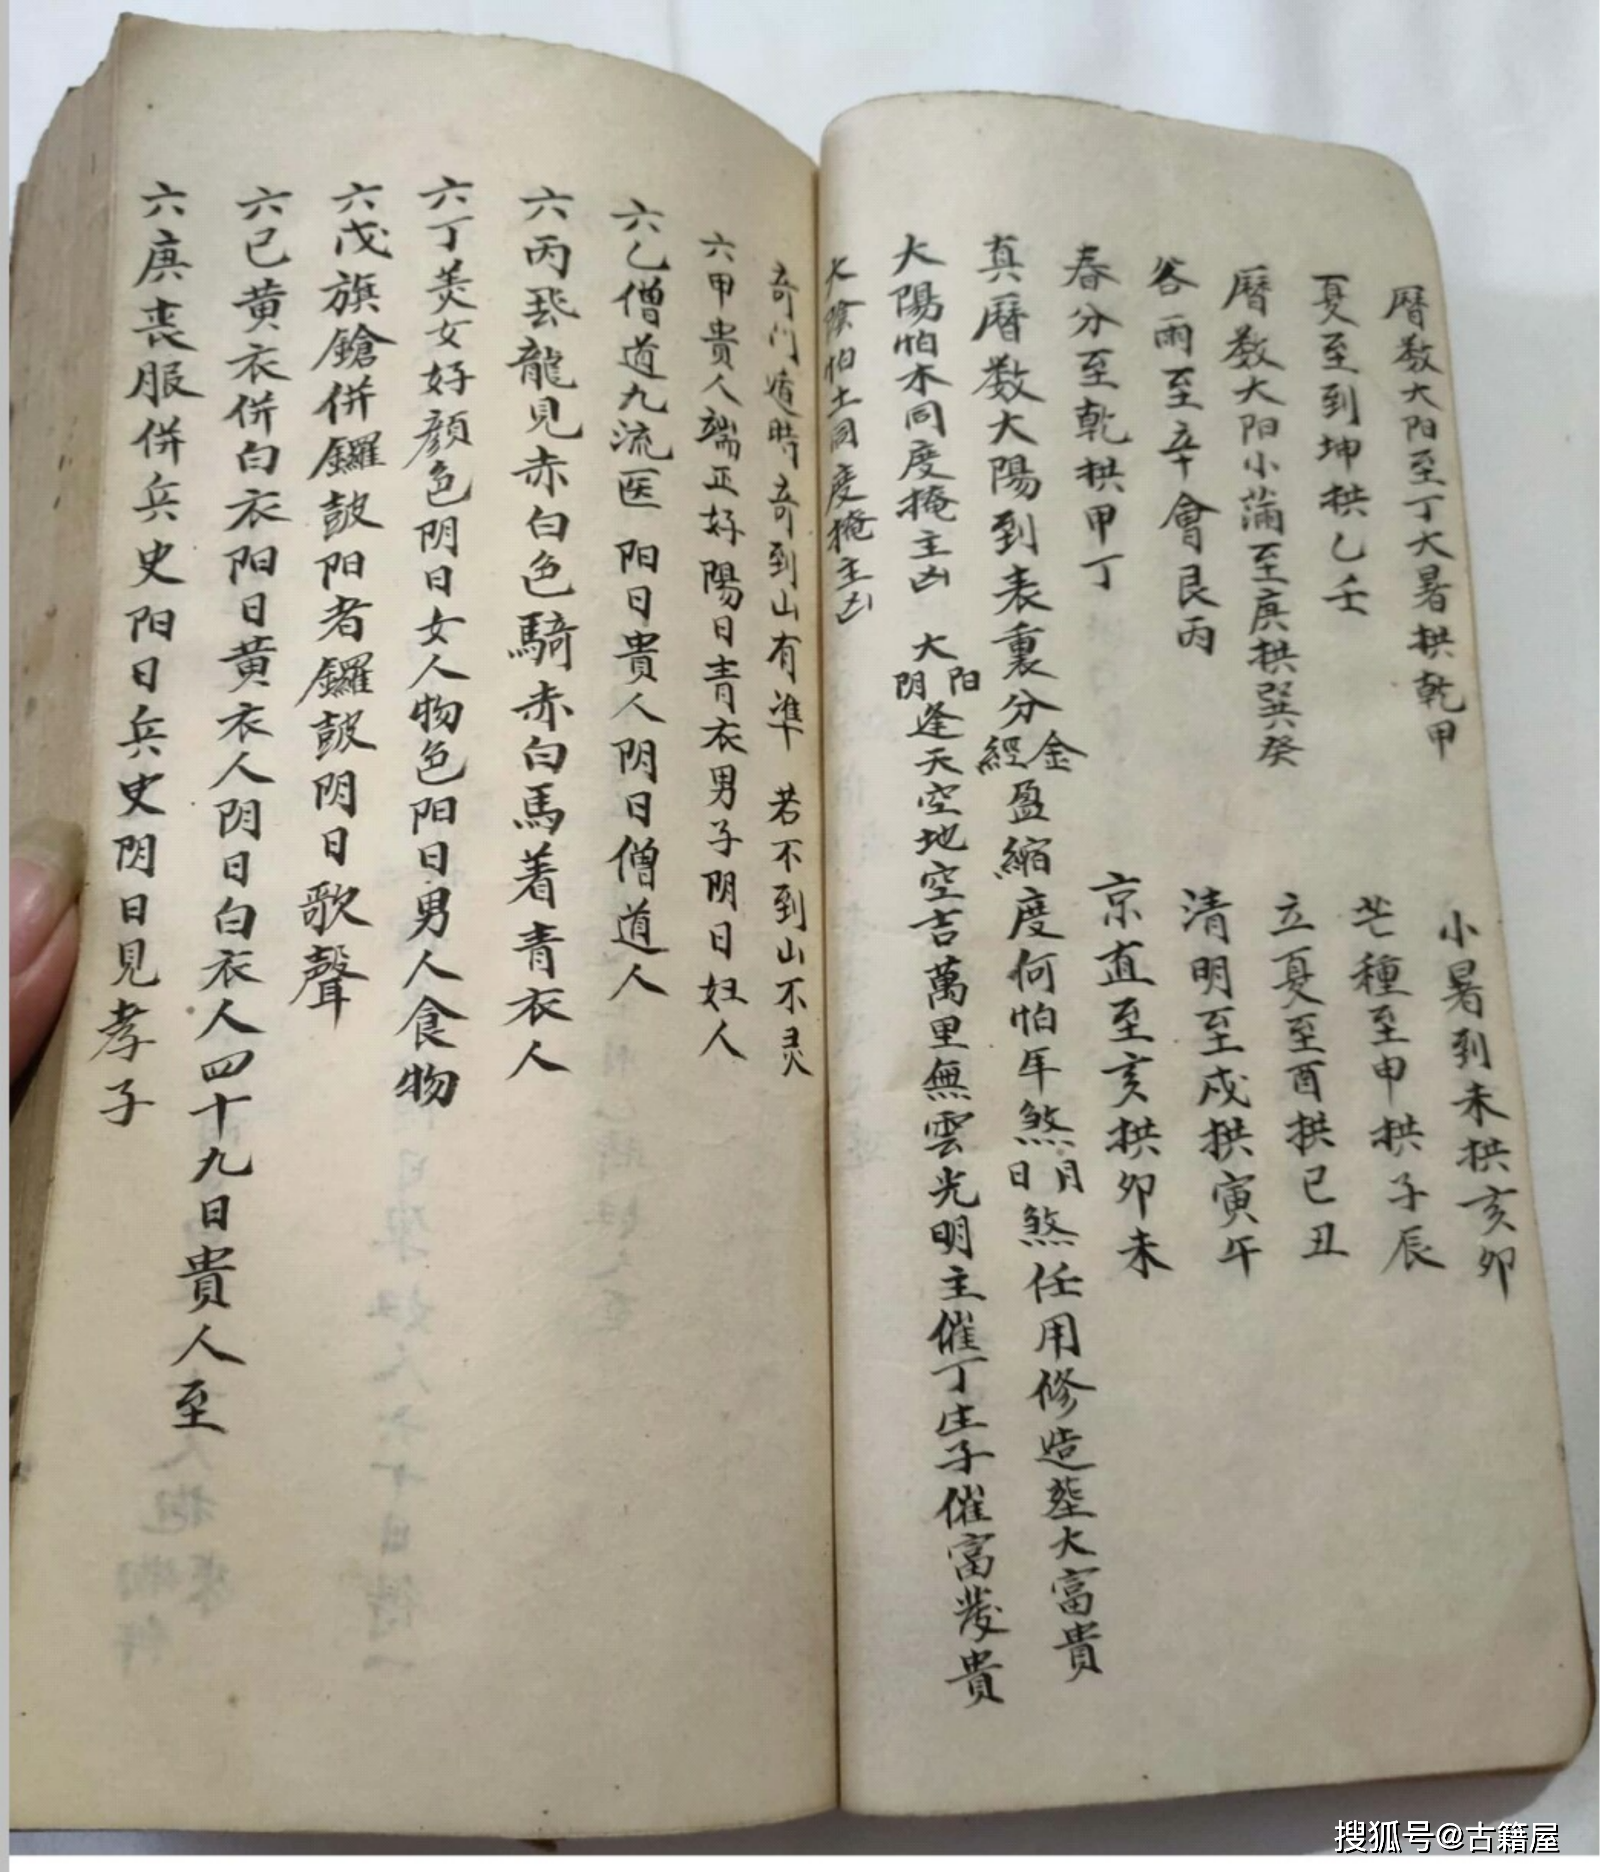 曆数大阳至丁大暑拱乾甲
小暑到未拱亥卯
夏至到坤拱乙壬
芒種至申拱子辰
曆数大阳小满至庚拱巽癸
立夏至酉拱巳丑
谷雨至辛會艮丙
清明至戌拱寅午
春分至乾拱甲丁
京直至亥拱卯未
真曆数大陽到表裏分金經盈縮度何怕年煞月日煞任用修造塟大富貴
大陽怕木同度掩主凶 大阳阴逢天空地空吉萬里無雲光明主催丁生子催富發貴
大陰怕土同度掩主凶
奇门遁時奇到山有準 若不到山不灵
六甲貴人端正好陽日青衣男子阴日妇人
六乙僧道九流医 阳日貴人阴日僧道人
六丙飛龍見赤白色騎赤白馬着青衣人
六丁美女好顔色阴日女人物色阳日男人食物
六戊旗鎗併鑼鼓阳者鑼鼓阴日歌聲
六己黄衣併白衣阳日黄衣人阴日白衣人四十九日貴人至
六庚丧服併兵史阳日兵史阴日見孝子
搜狐号@古籍屋